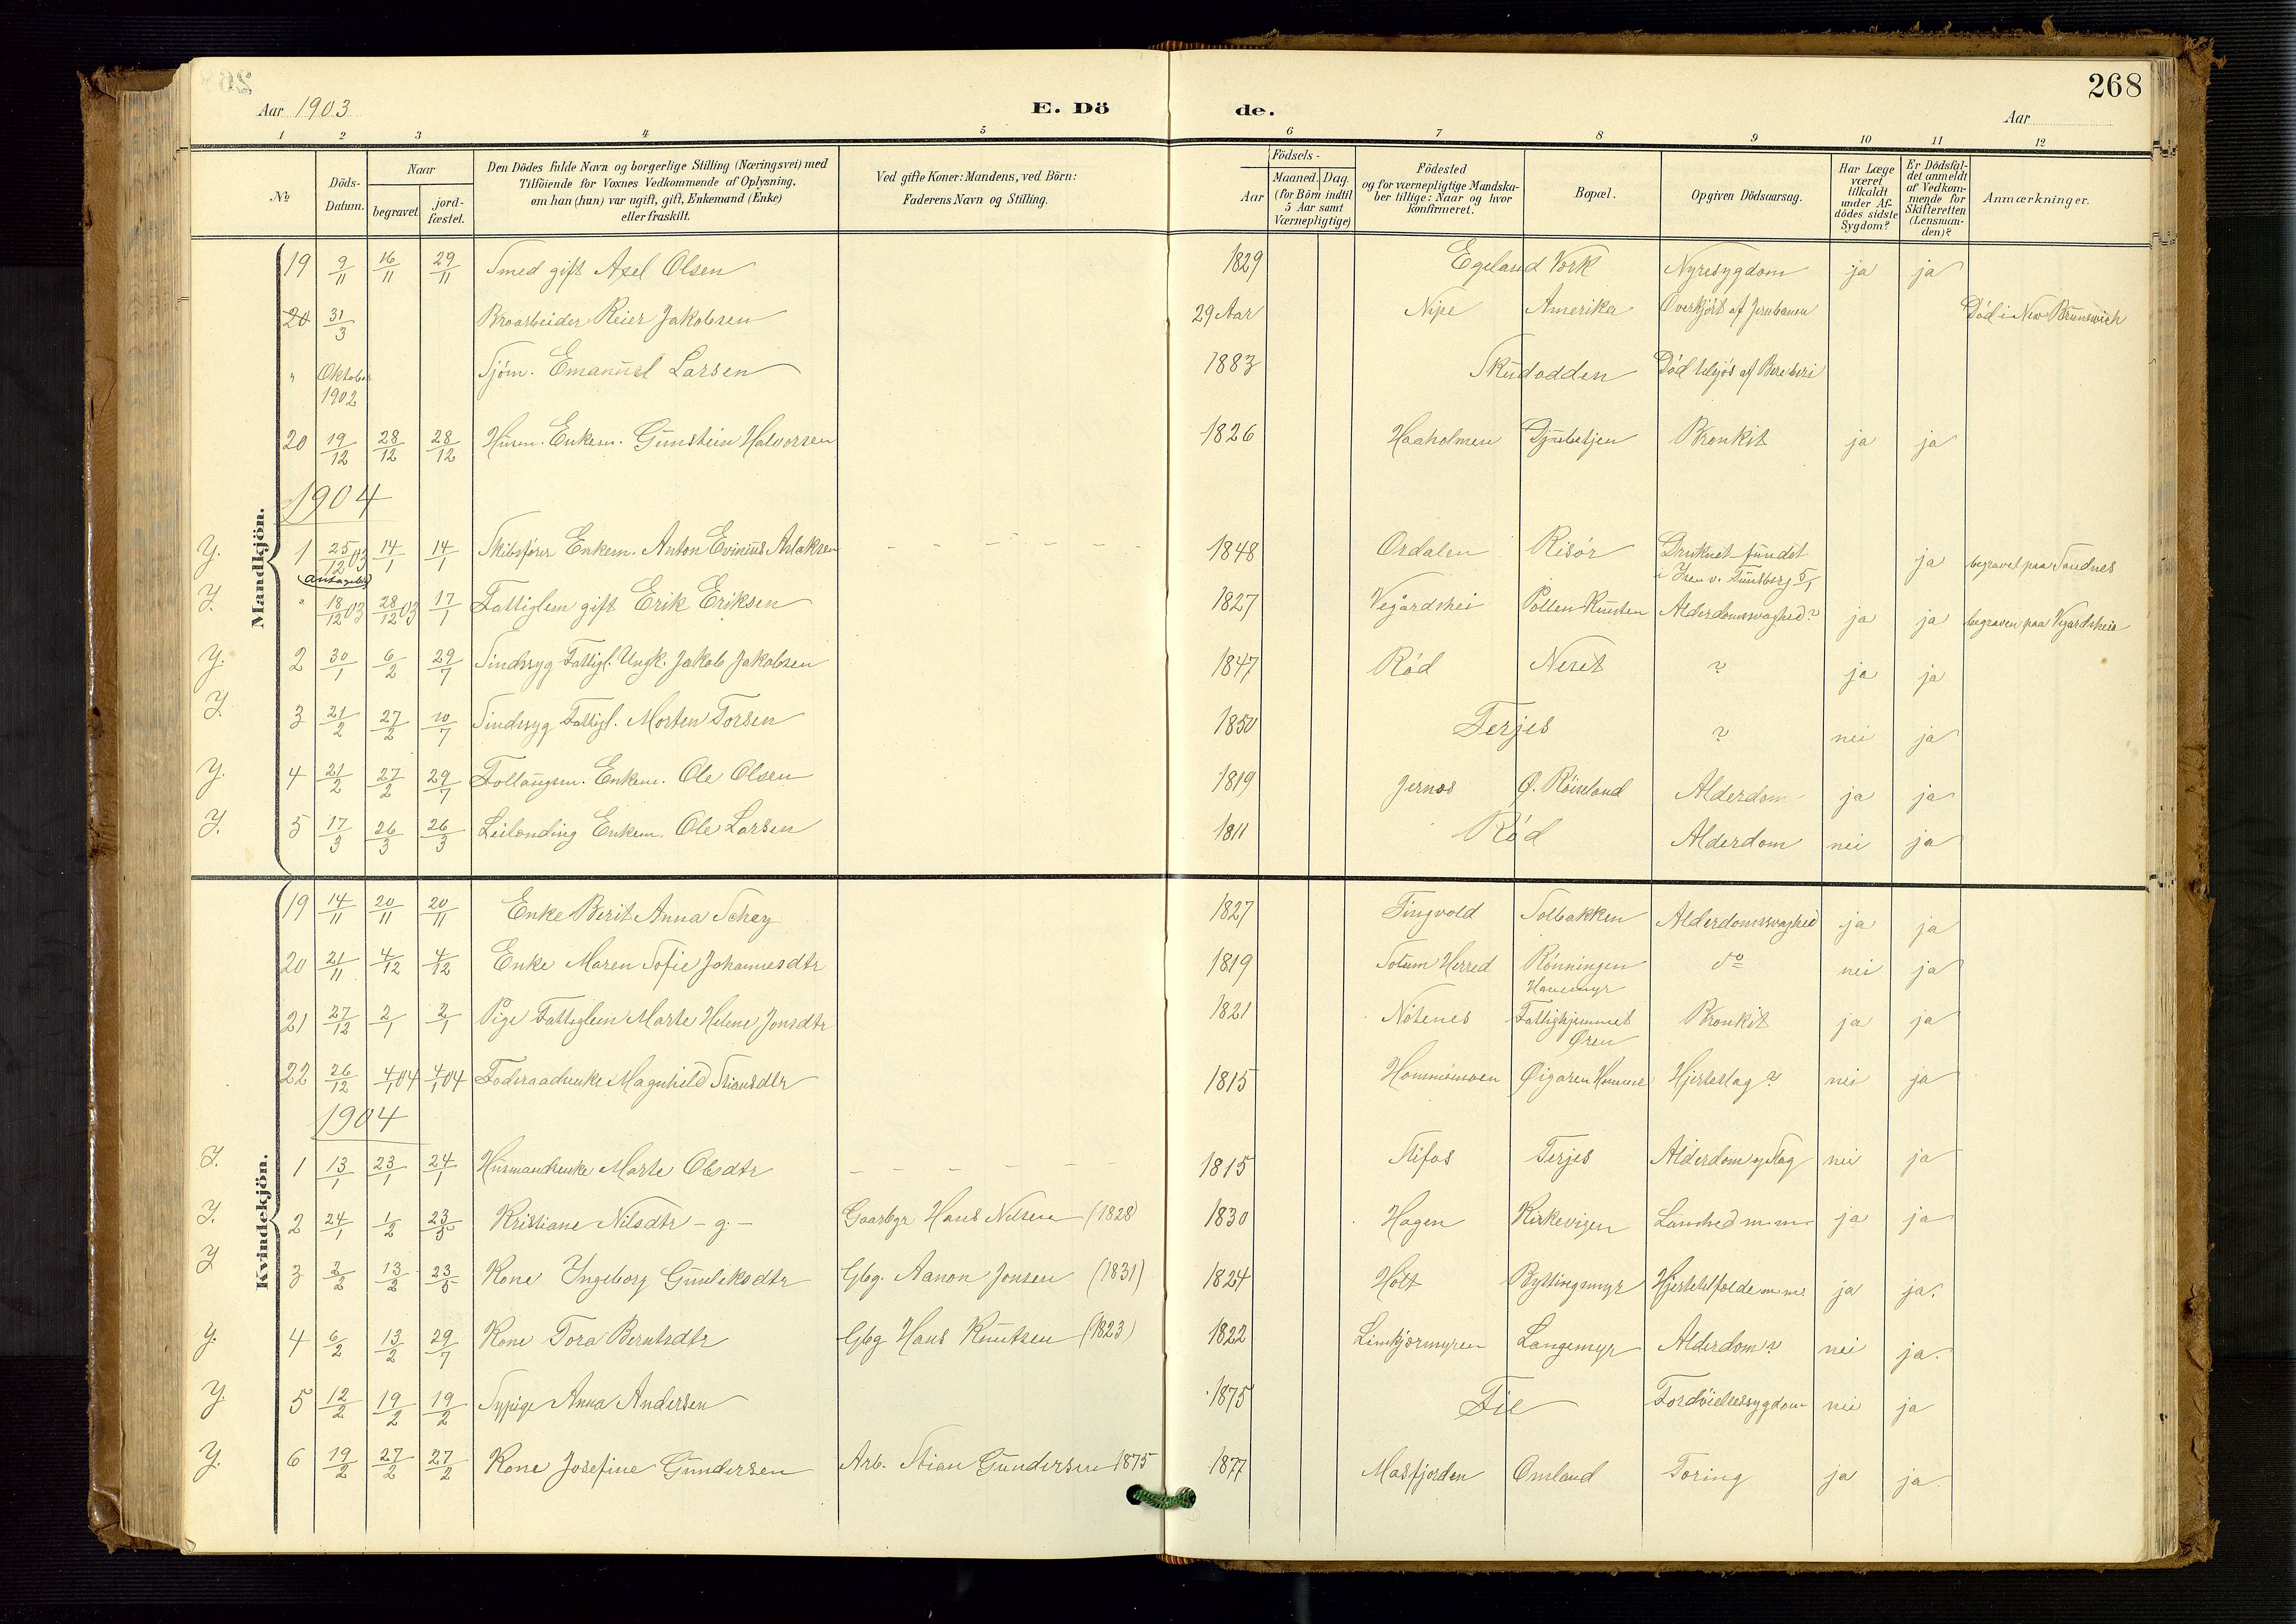 268
Aar 1903
E. Dö de.
Aar
1 2 3 4 5 6 7 8 9 10 11 12
No
Döds-Datum.
Naar
begravet
jord-fæstet.
Den Dödes fulde Navn og borgerlige Stilling (Næringsvei) med
Tilföiende for Voxnes Vedkommende af Oplysning.
om han (hun) var ugift, gift, Enkemand (Enke)
eller fraskilt.
Ved gifte Koner: Mandens, ved Börn:
Faderens Navn og Stilling.
Födsels-
Aar
Maaned. Dag.
(for Börn indtil
5 Aar samt
Værnepligtige)
Födested
og for værnepligtige Mandska-
ber tillige: Naar og hvor
konfirmeret.
Bopæl.
Opgiven Dödsaarsag.
Har Læge
været
tilkaldt
under Af-
dödes sidste
Sygdom?
Er Dödsfal-
det anmeldt
af Vedkom-
mende for
Skifteretten
(Lensman-
den)?
Anmærkninger.
Mandkjön.
19 9/11 16/11 29/11 Smed gift Axel Olsen 1829 Egeland Verk Nyresygdom ja ja
20 31/3 Broarbeider Reier Jakobsen 29 Aar Nipe Amerika Overkjört af Jernbanen Död i New Brunswich
" Oktober 1902 Sjöm. Emanuel Larsen 1883 Skudodden Död tilsjös af Beriberi
20 19/12 28/12 28/12 Husm. Enkem. Gunstein Halvorsen 1826 Haaholmen Bronkit ja ja
1904
Y. 1 25/12 03 14/1 14/1 Skibsförer Enkem. Anton Evinius Aslaksen 1848 Osdalen Risör Druknet fundet
antagelig i Isen v. Tunsberg 5/1 ja begravet paa Sandnes
Y. " 18/12 03 28/12 03 17/1 Fattiglem gift Erik Eriksen 1827 Vegårdshei Pollen Alderdomssvaghed? ja ja begraven paa Vegardsheia
Y. 2 30/1 6/2 29/7 Sindssyg Fattigl. Ungk. Jakob Jakobsen 1847 Röd Neset ? ja ja
Y. 3 21/2 27/2 10/7 Sindssyg Fattigl. Morten Torsen 1850 Terjes ? nei ja
Y. 4 21/2 27/2 29/7 Enkem. Ole Olsen 1819 Jernes Ø. Röiseland Alderdom ja ja
Y. 5 17/3 26/3 26/3 Leilending Enkem. Ole Larsen 1811 Röd Alderdom nei ja
Kvindekjön.
19 14/11 20/11 20/11 Enke Berit Anna Schey 1827 Tingvold Solbakken Alderdomssvaghed ja ja
20 21/11 4/12 4/12 Enke Maren Sofie Johannesdtr 1819 Herred Rönningen do nei ja
Havemyr
21 27/12 2/1 2/1 Pige Fattiglem Marte Helene Jonsdtr 1821 Nötenes Fattighjemmet Bronkit ja ja
Øren
22 26/12 4/1 04 4/1 04 Föderaadsenke Magnhild Stiansdtr 1815 Hommemoen Hjerteslag? nei ja
1904
Y. 1 13/1 23/1 24/1 Husmandsenke Marte Olsdtr 1815 Stifos Terjes Alderdom og Slag nei ja
Y. 2 24/1 1/2 23/5 Kristiane Nilsdtr - g. - Gaardbgr Hans Nilsen (1828) 1830 Hagen Kirkevigen Lamhed m.m. ja ja
Y 3 2/2 13/2 23/5 Kone Ingeborg Gunleksdtr Gbg. Aanon Jonsen (1831) 1824 Holt Byttingsmyr Hjertetilfælde m.m. ja ja.
Y. 4 6/2 13/2 29/7 Kone Tora Berntsdtr Gbg Hans Knutsen (1823) 1822 Limkjærmyren Langemyr Alderdom? nei ja.
Y. 5 12/2 19/2 19/2 Sypige Anna Andersen 1875 Fie Fordöielsessygdom nei ja
Y. 6 19/2 27/2 27/2 Kone Josefine Gundersen Arb. Stian Gundersen 1875 1877 Masfjorden Omland Toring ja ja